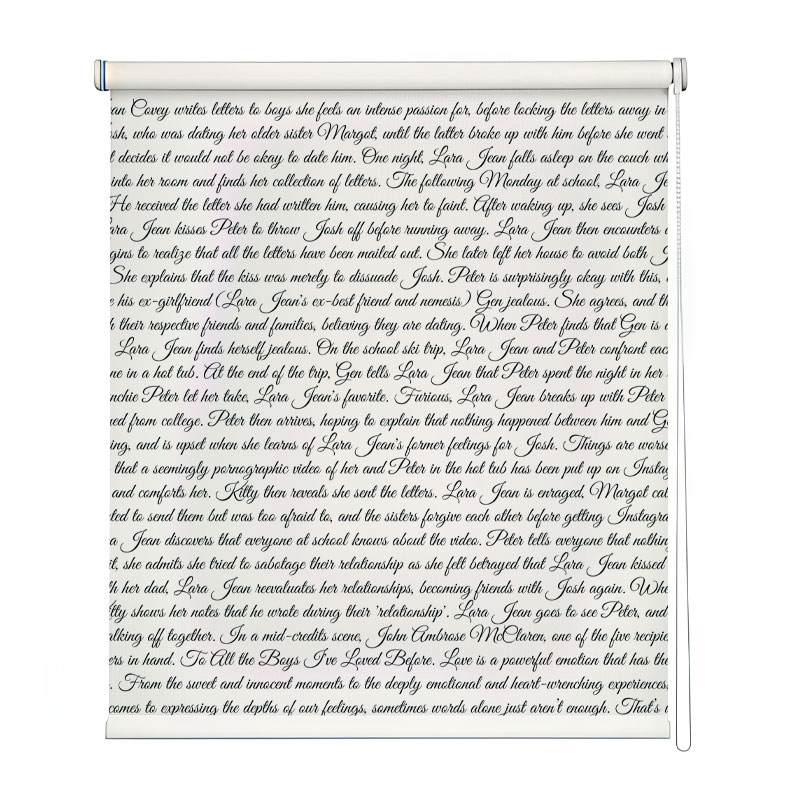 an Covey writes letters to boys she feels an intense passion for, before locking the letters away in
sh, who was dating her older sister Margot, until the latter broke up with him before she went
t decides it would not be okay to date him. One night, Lara Jean falls asleep on the couch wh
into her room and finds her collection of letters. The following Monday at school, Lara Je
He received the letter she had written him, causing her to faint. After waking up, she sees Josh
ara Jean kisses Peter to throw Josh off before running away. Lara Jean then encounters a
gins to realize that all the letters have been mailed out. She later left her house to avoid both J
She explains that the kiss was merely to dissuade Josh. Peter is surprisingly okay with this,
e his ex-girlfriend (Lara Jean's ex-best friend and nemesis) Gen jealous. She agrees, and th
h their respective friends and families, believing they are dating. When Peter finds that Gen is a
Lara Jean finds herself jealous. On the school ski trip, Lara Jean and Peter confront eac
ne in a hot tub. At the end of the trip, Gen tells Lara Jean that Peter spent the night in her
nchie Peter let her take, Lara Jean's favorite. Furious, Lara Jean breaks up with Peter
ned from college. Peter then arrives, hoping to explain that nothing happened between him and G
ing, and is upset when she learns of Lara Jean's former feelings for Josh. Things are worse
that a seemingly pornographic video of her and Peter in the hot tub has been put up on Instag
and comforts her. Kitty then reveals she sent the letters. Lara Jean is enraged, Margot cal
ted to send them but was too afraid to, and the sisters forgive each other before getting Instagra
a Jean discovers that everyone at school knows about the video. Peter tells everyone that nothin
it, she admits she tried to sabotage their relationship as she felt betrayed that Lara Jean kissed
h her dad, Lara Jean reevaluates her relationships, becoming friends with Josh again. Whe
itty shows her notes that he wrote during their 'relationship'. Lara Jean goes to see Peter, and
alking off together. In a mid-credits scene, John Ambrose McClaren, one of the five recipie
ers in hand. To All the Boys I've Loved Before. Love is a powerful emotion that has the
. From the sweet and innocent moments to the deeply emotional and heart-wrenching experiences,
comes to expressing the depths of our feelings, sometimes words alone just aren't enough. That's